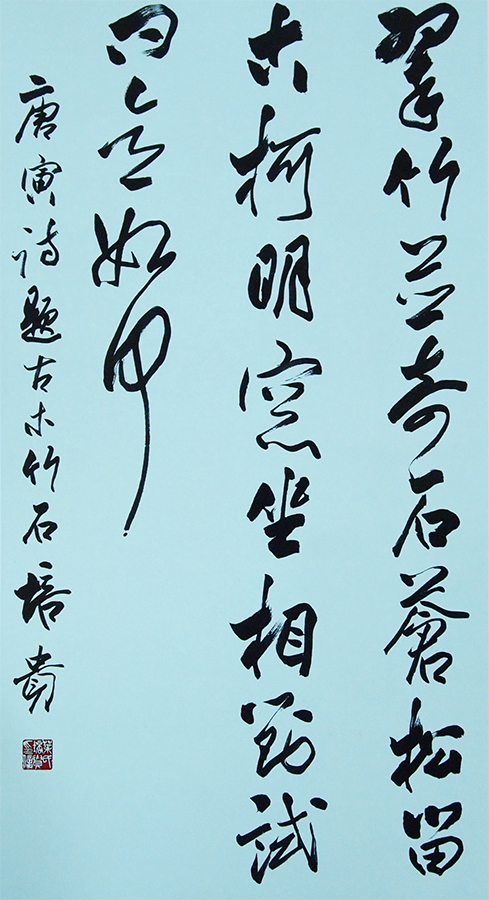 翠竹並奇石蒼松留
古柯明窓坐相對試
問如何
唐寅詩題古木竹石培貴